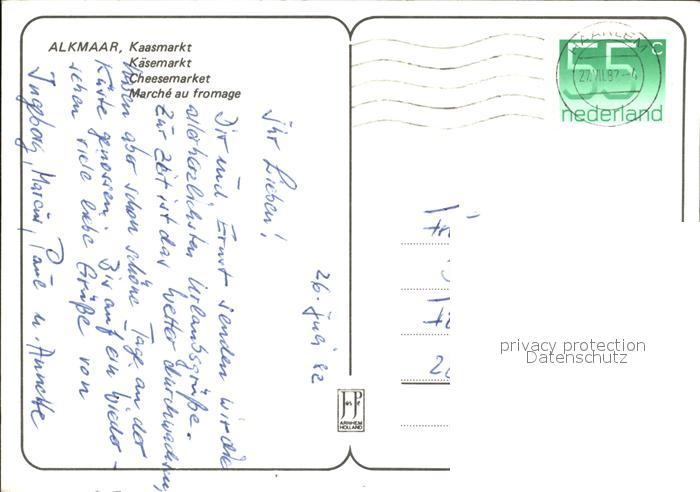 ALKMAAR, Kaasmarkt
Käsemarkt
Cheesemarket
Marché au fromage
26. Juli 82
Ihr Lieben!
Dir und Ernst senden wir die
allerherzlichsten Urlaubsgrüße.
Zur Zeit ist das Wetter durchwachsen,
haben aber schon schöne Tage an der
Küste genossen. Bis auf ein Wieder-
sehen viele liebe Grüße von
Ingeborg, Marcus, Paul u. Annette
HAARLEM
27.VII.82
55 c
nederland
JosPe
ARNHEM
HOLLAND
privacy protection
Datenschutz